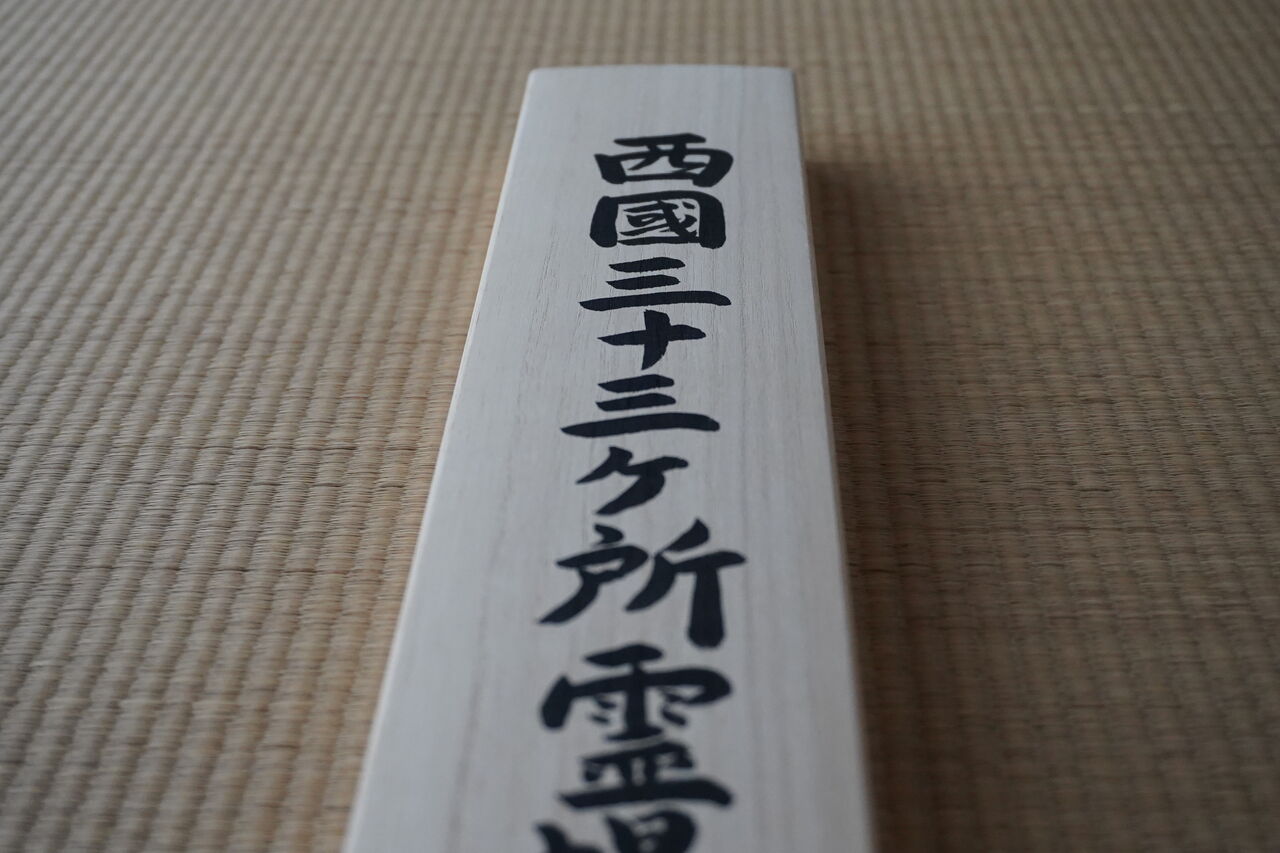 西國三十三ケ所霊場